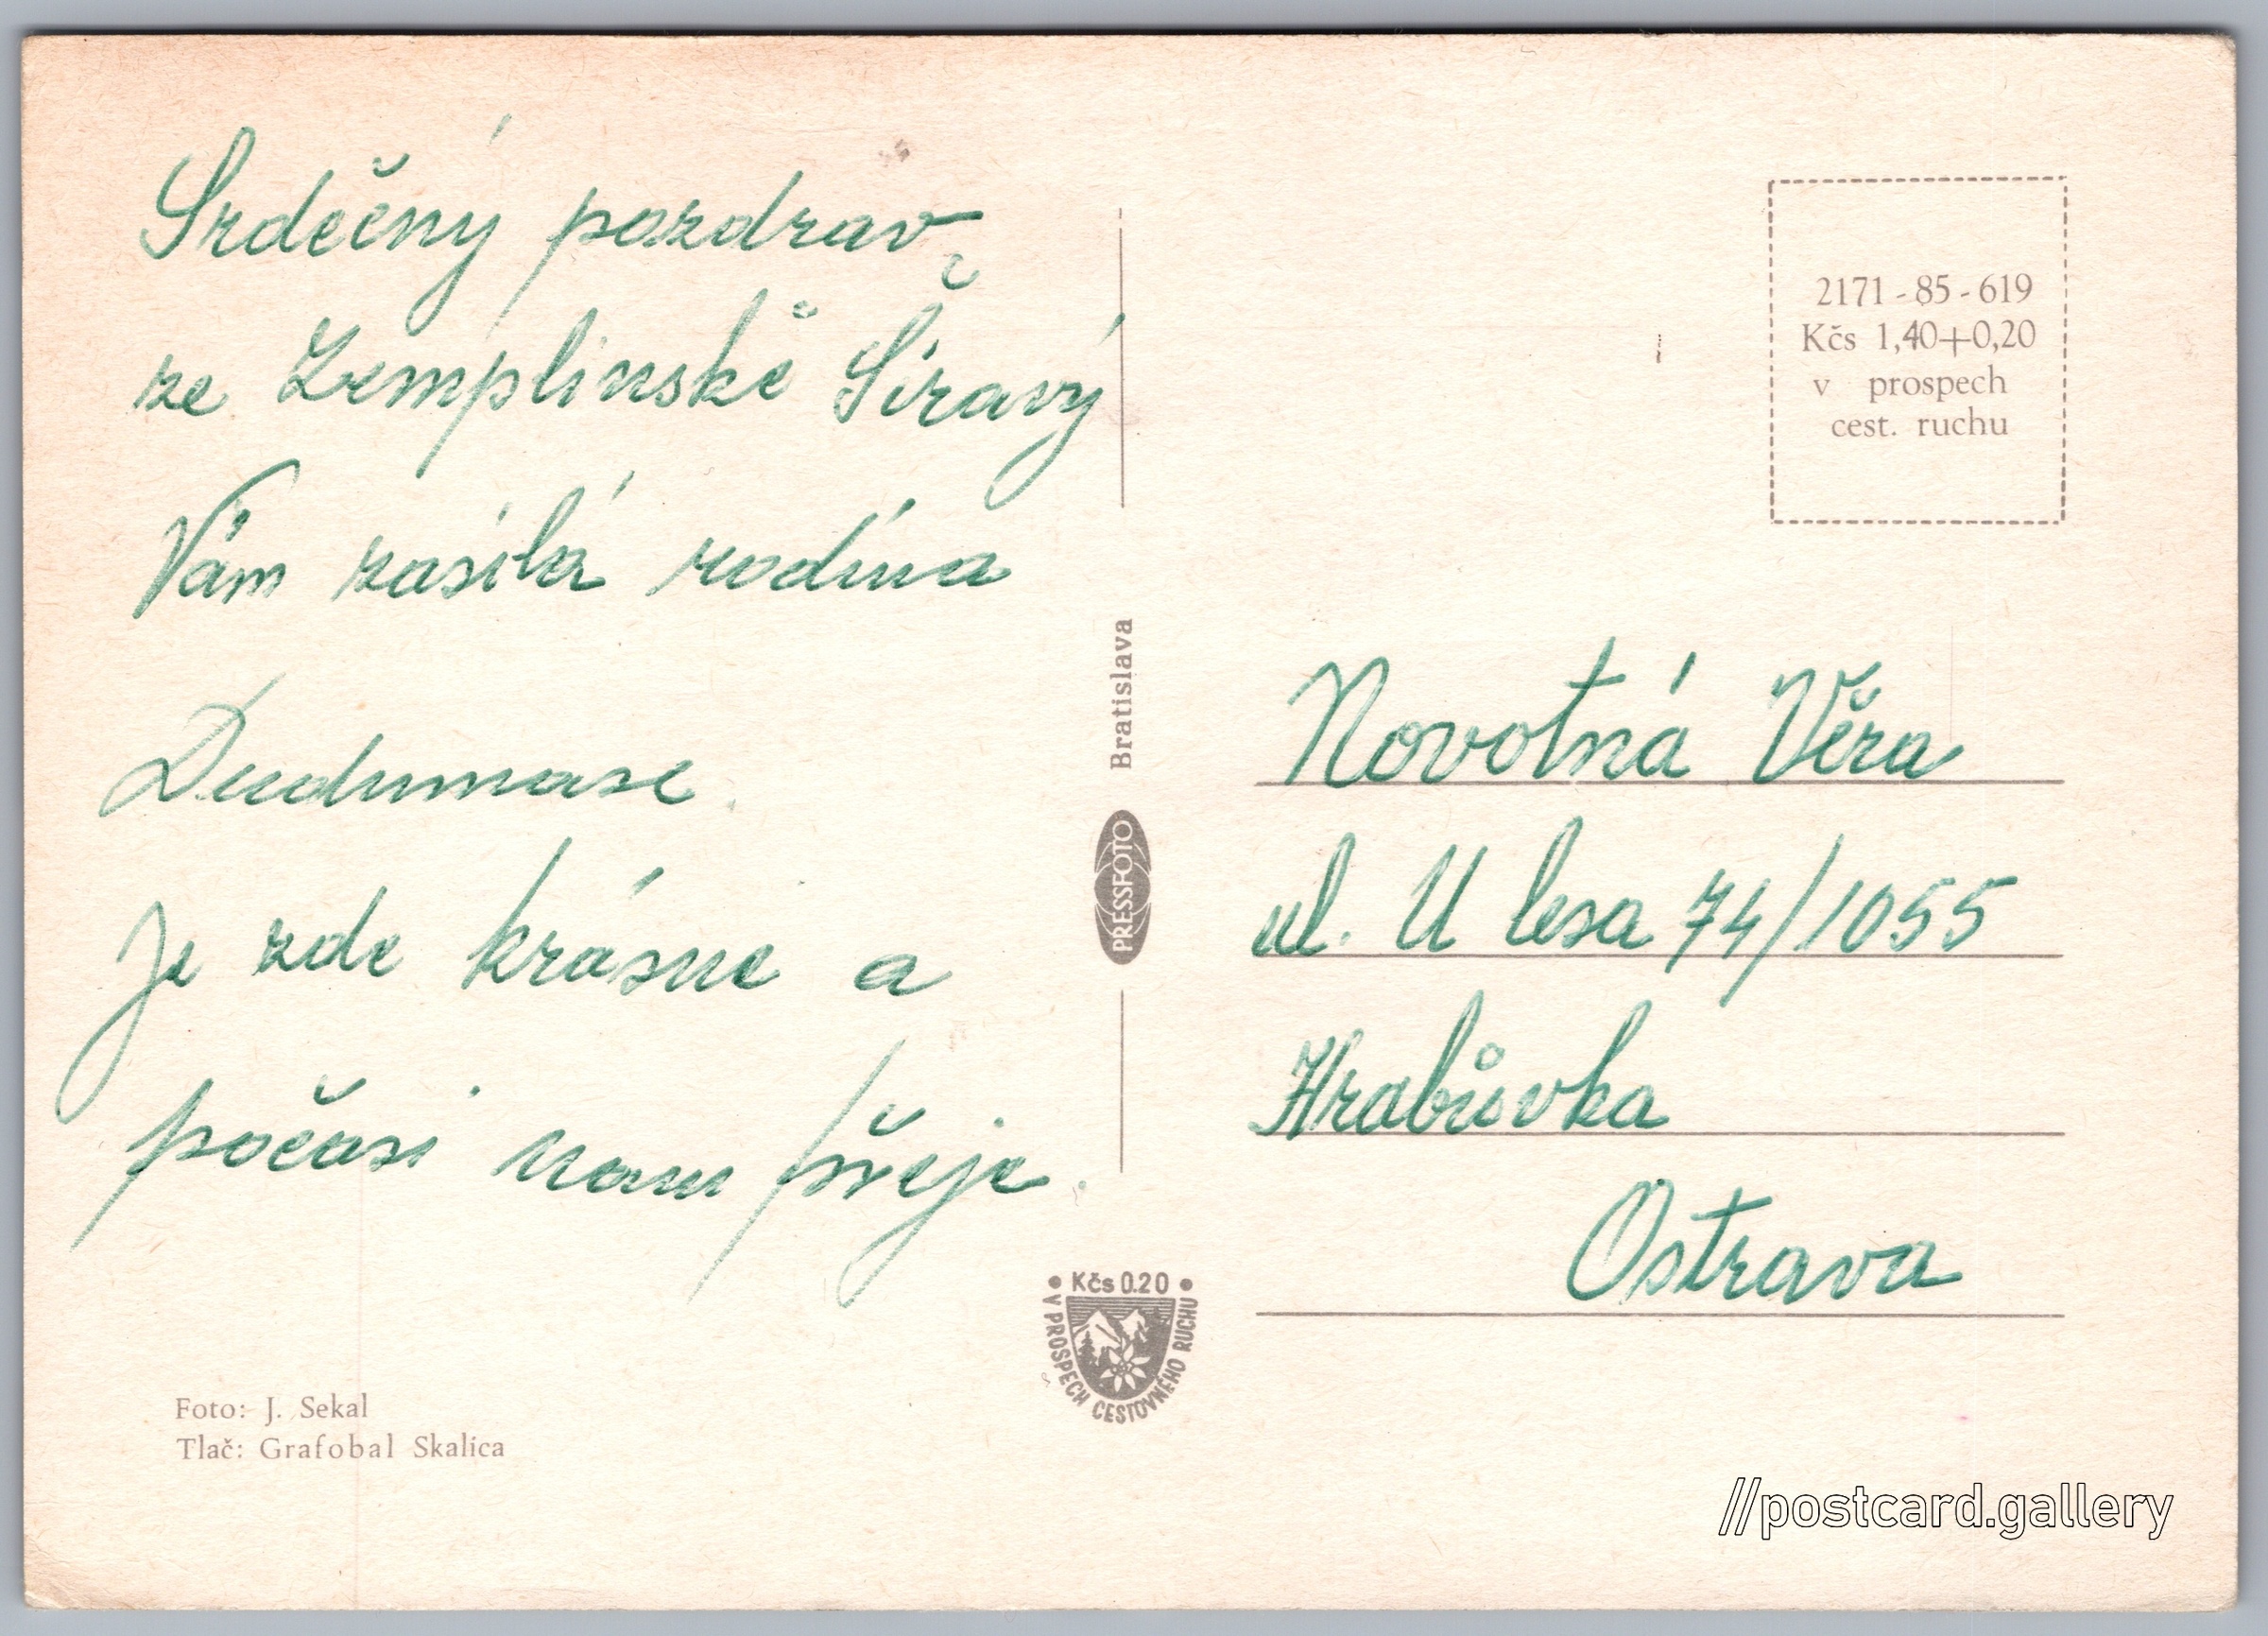 Srdečný pozdrav
ze Zemplinské Šíravý
Vám zasílá rodina
Je zde krásne a
počasi nam přeje.
Foto: J. Sekal
Tlač: Grafobal Skalica
Bratislava
PRESSFOTO
Kčs 0.20
V PROSPECH CESTOVNÉHO RUCHU
2171 - 85 - 619
Kčs 1,40+0,20
v prospech
cest. ruchu
Novotná Věra
ul. U lesa 74/1055
Hrabůvka
Ostrava
//postcard.gallery